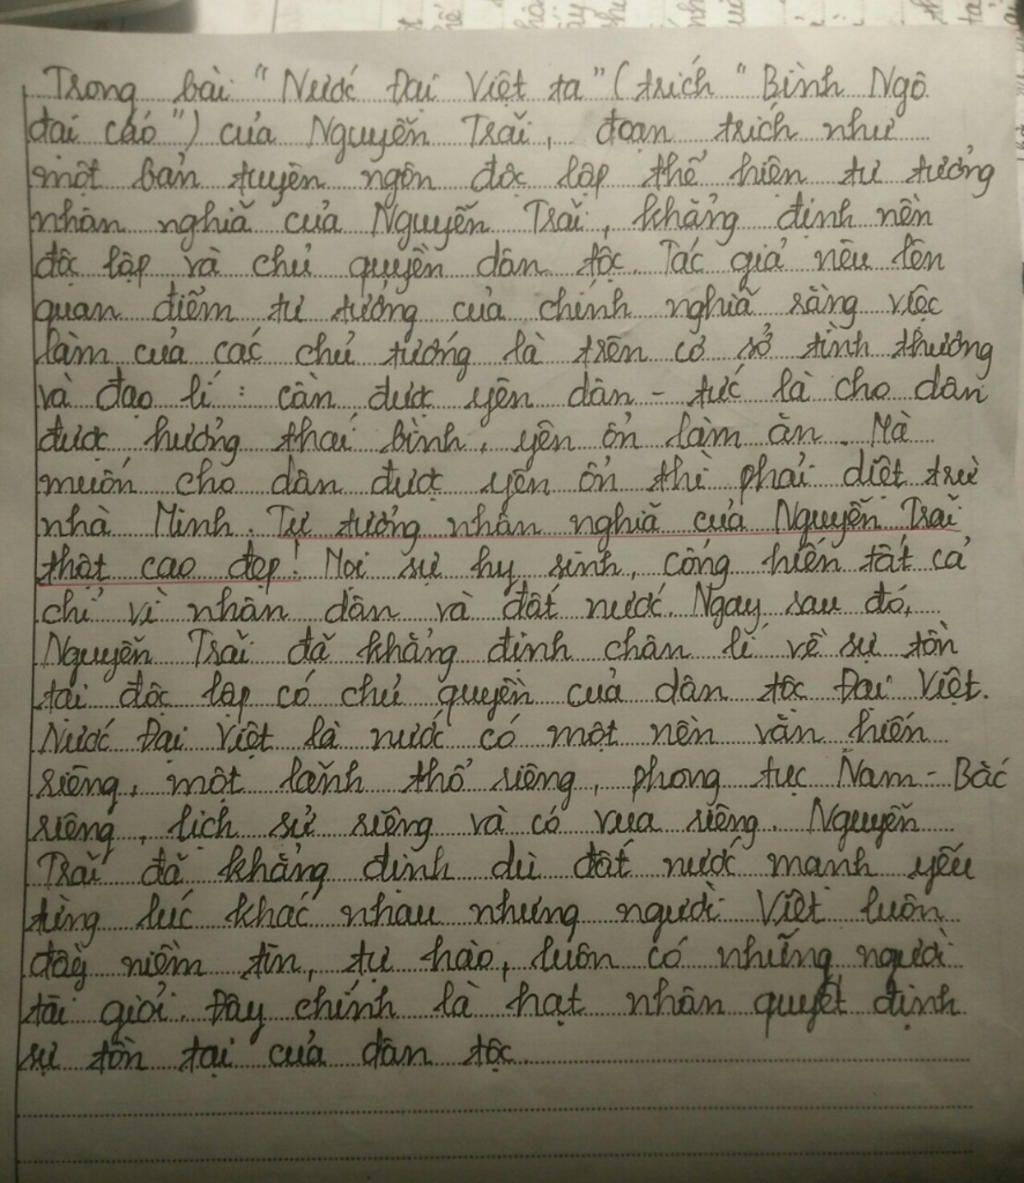 Trong bài "Nước Đại Việt ta" (trích "Bình Ngô
đại cáo") của Nguyễn Trãi, đoạn trích như
một bản tuyên ngôn độc lập thể hiện tư tưởng
nhân nghĩa của Nguyễn Trãi, khẳng định nền
độc lập và chủ quyền dân tộc. Tác giả nêu lên
quan điểm tư tưởng của chính nghĩa rằng việc
làm của các chủ tướng là trên cơ sở tình thương
và đạo lí: cần được yên dân - tức là cho dân
được hưởng thái bình, yên ổn làm ăn. Mà
muốn cho dân được yên ổn thì phải diệt trừ
nhà Minh. Tư tưởng nhân nghĩa của Nguyễn Trãi
thật cao đẹp! Mọi sự hy sinh, cống hiến tất cả
chỉ vì nhân dân và đất nước. Ngay sau đó,
Nguyễn Trãi đã khẳng định chân lí về sự tồn
tại độc lập có chủ quyền của dân tộc Đại Việt.
Nước Đại Việt là nước có một nền văn hiến
riêng, một lãnh thổ riêng, phong tục Nam - Bắc
riêng, lịch sử riêng và có vua riêng. Nguyễn
Trãi đã khẳng định dù đất nước mạnh yếu
từng lúc khác nhau nhưng người Việt luôn
đầy niềm tin, tự hào, luôn có những người
tài giỏi. Đây chính là hạt nhân quyết định
sự tồn tại của dân tộc.